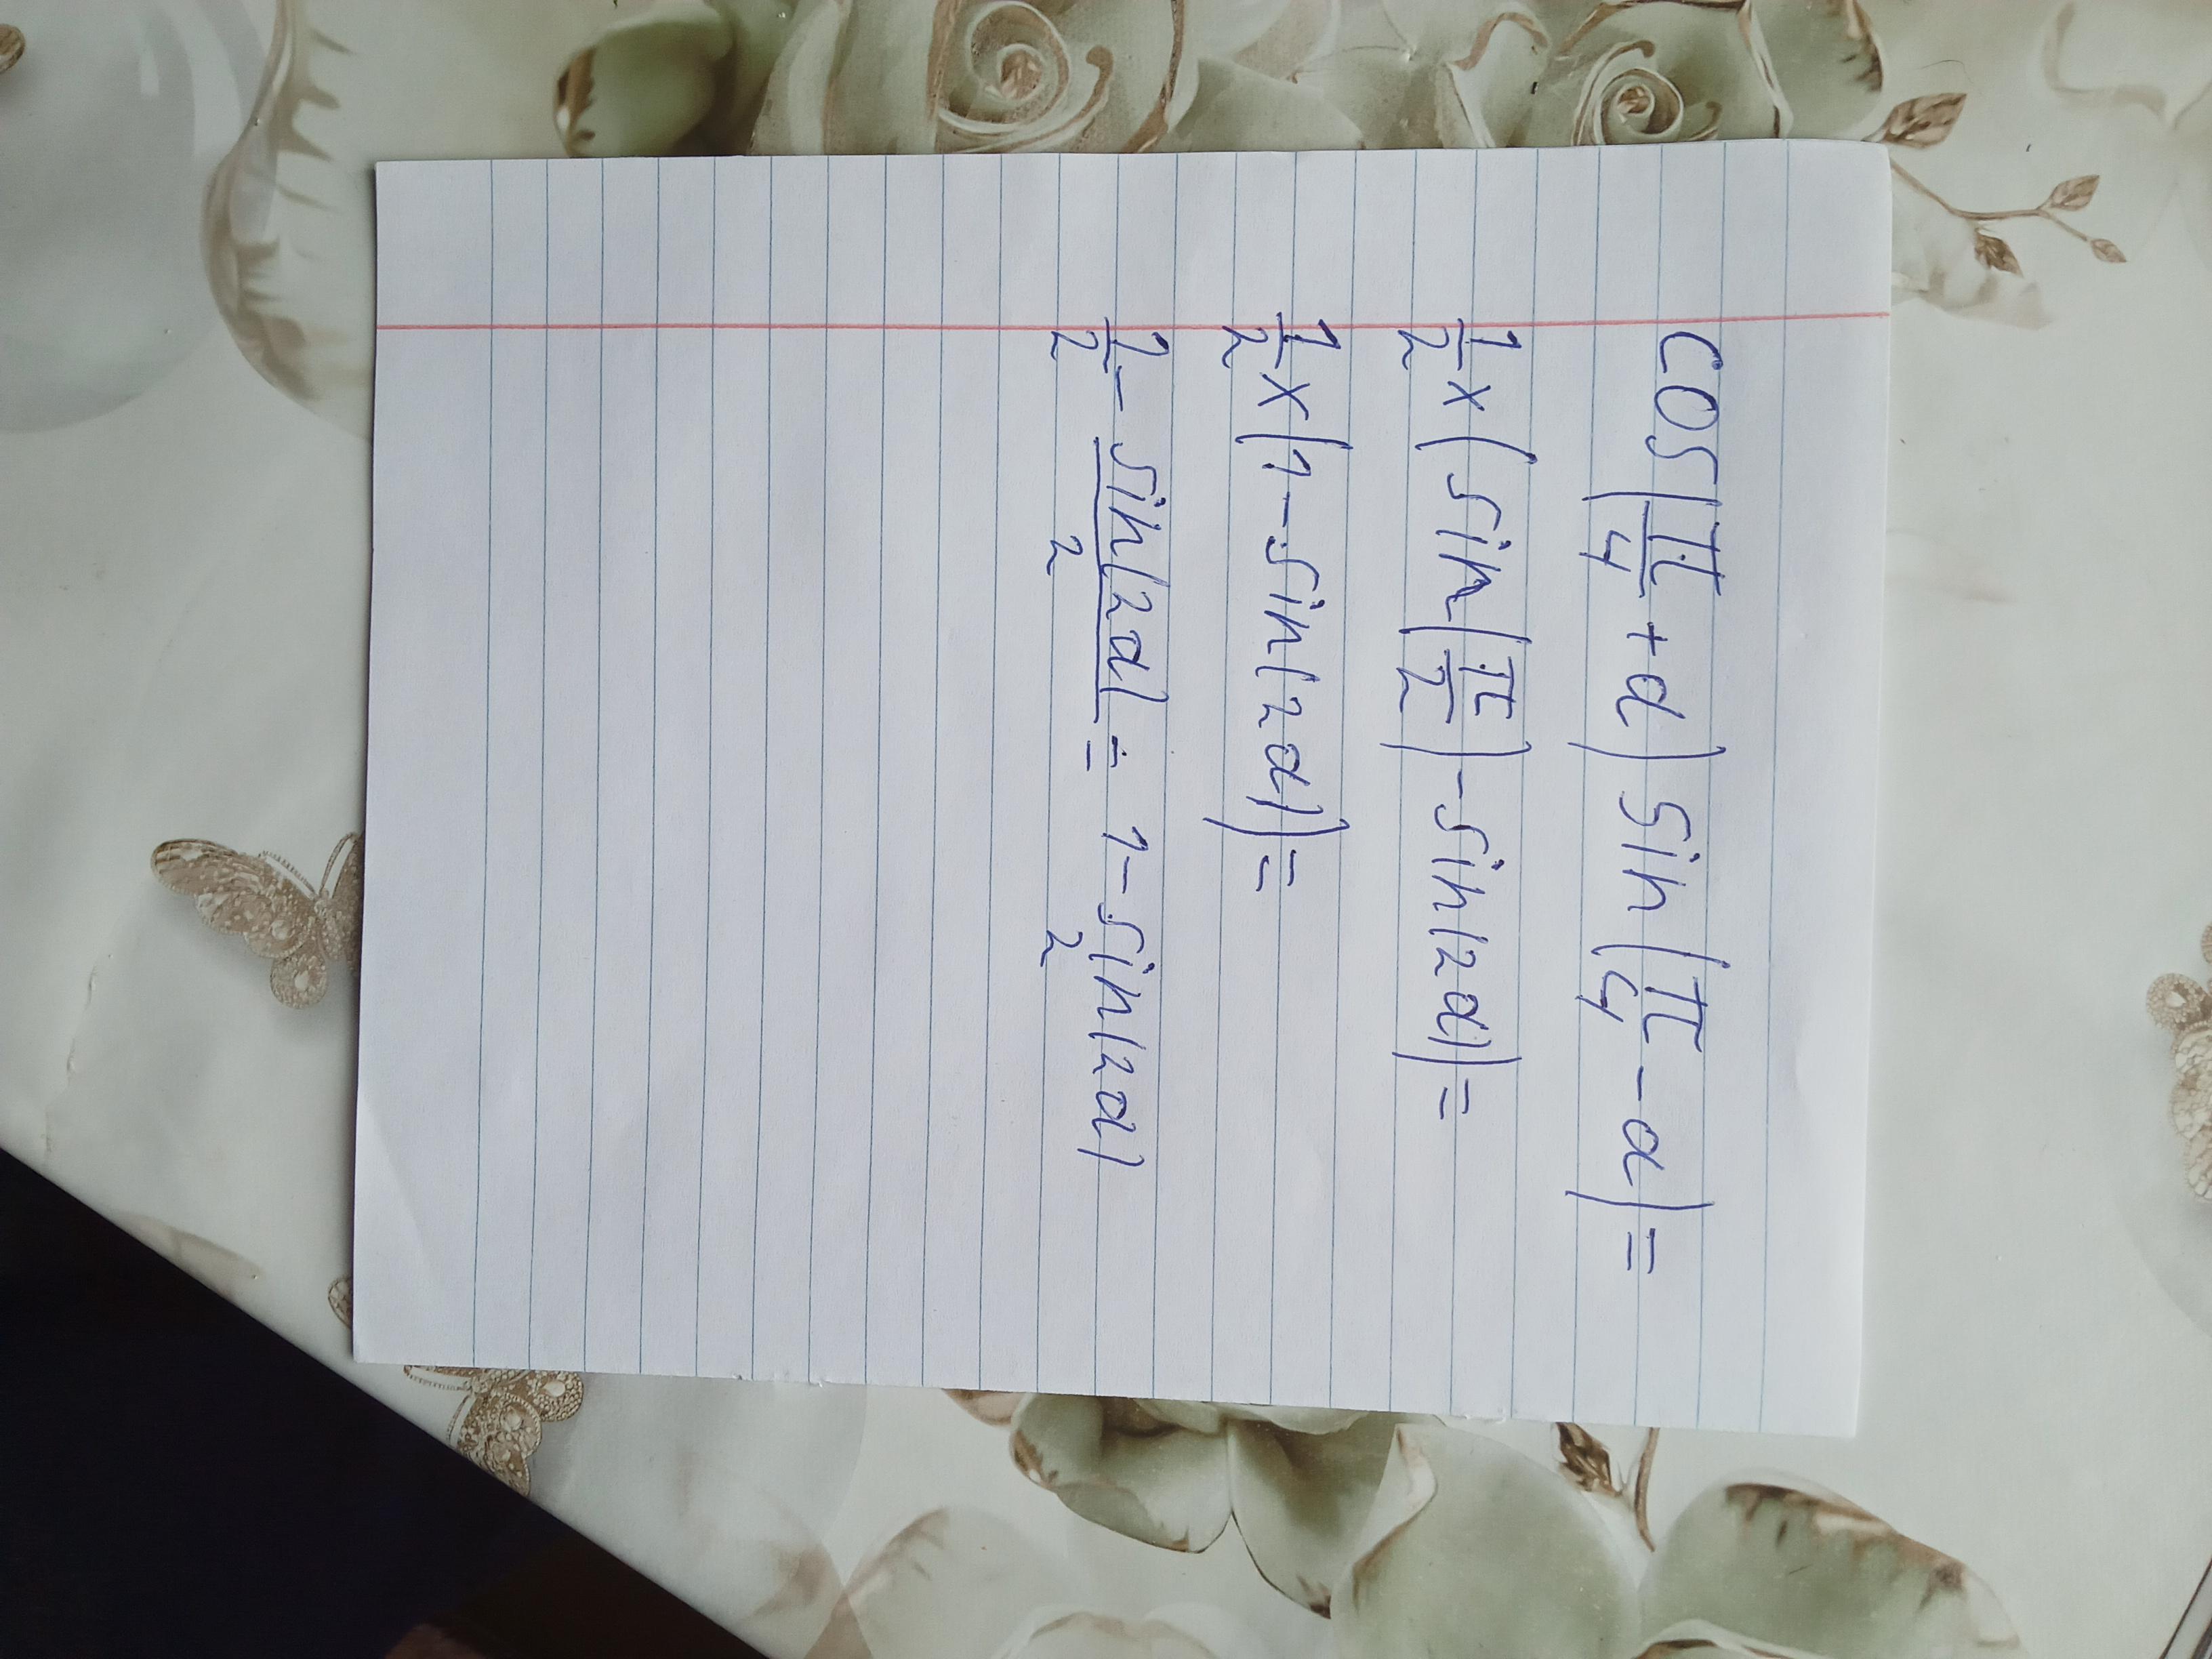 cos(π/4 + α) sin(π/4 - α) =
1/2 × (sin(π/2) - sin(2α)) =
1/2 × (1 - sin(2α)) =
1/2 - sin(2α)/2 = 1 - sin(2α)/2